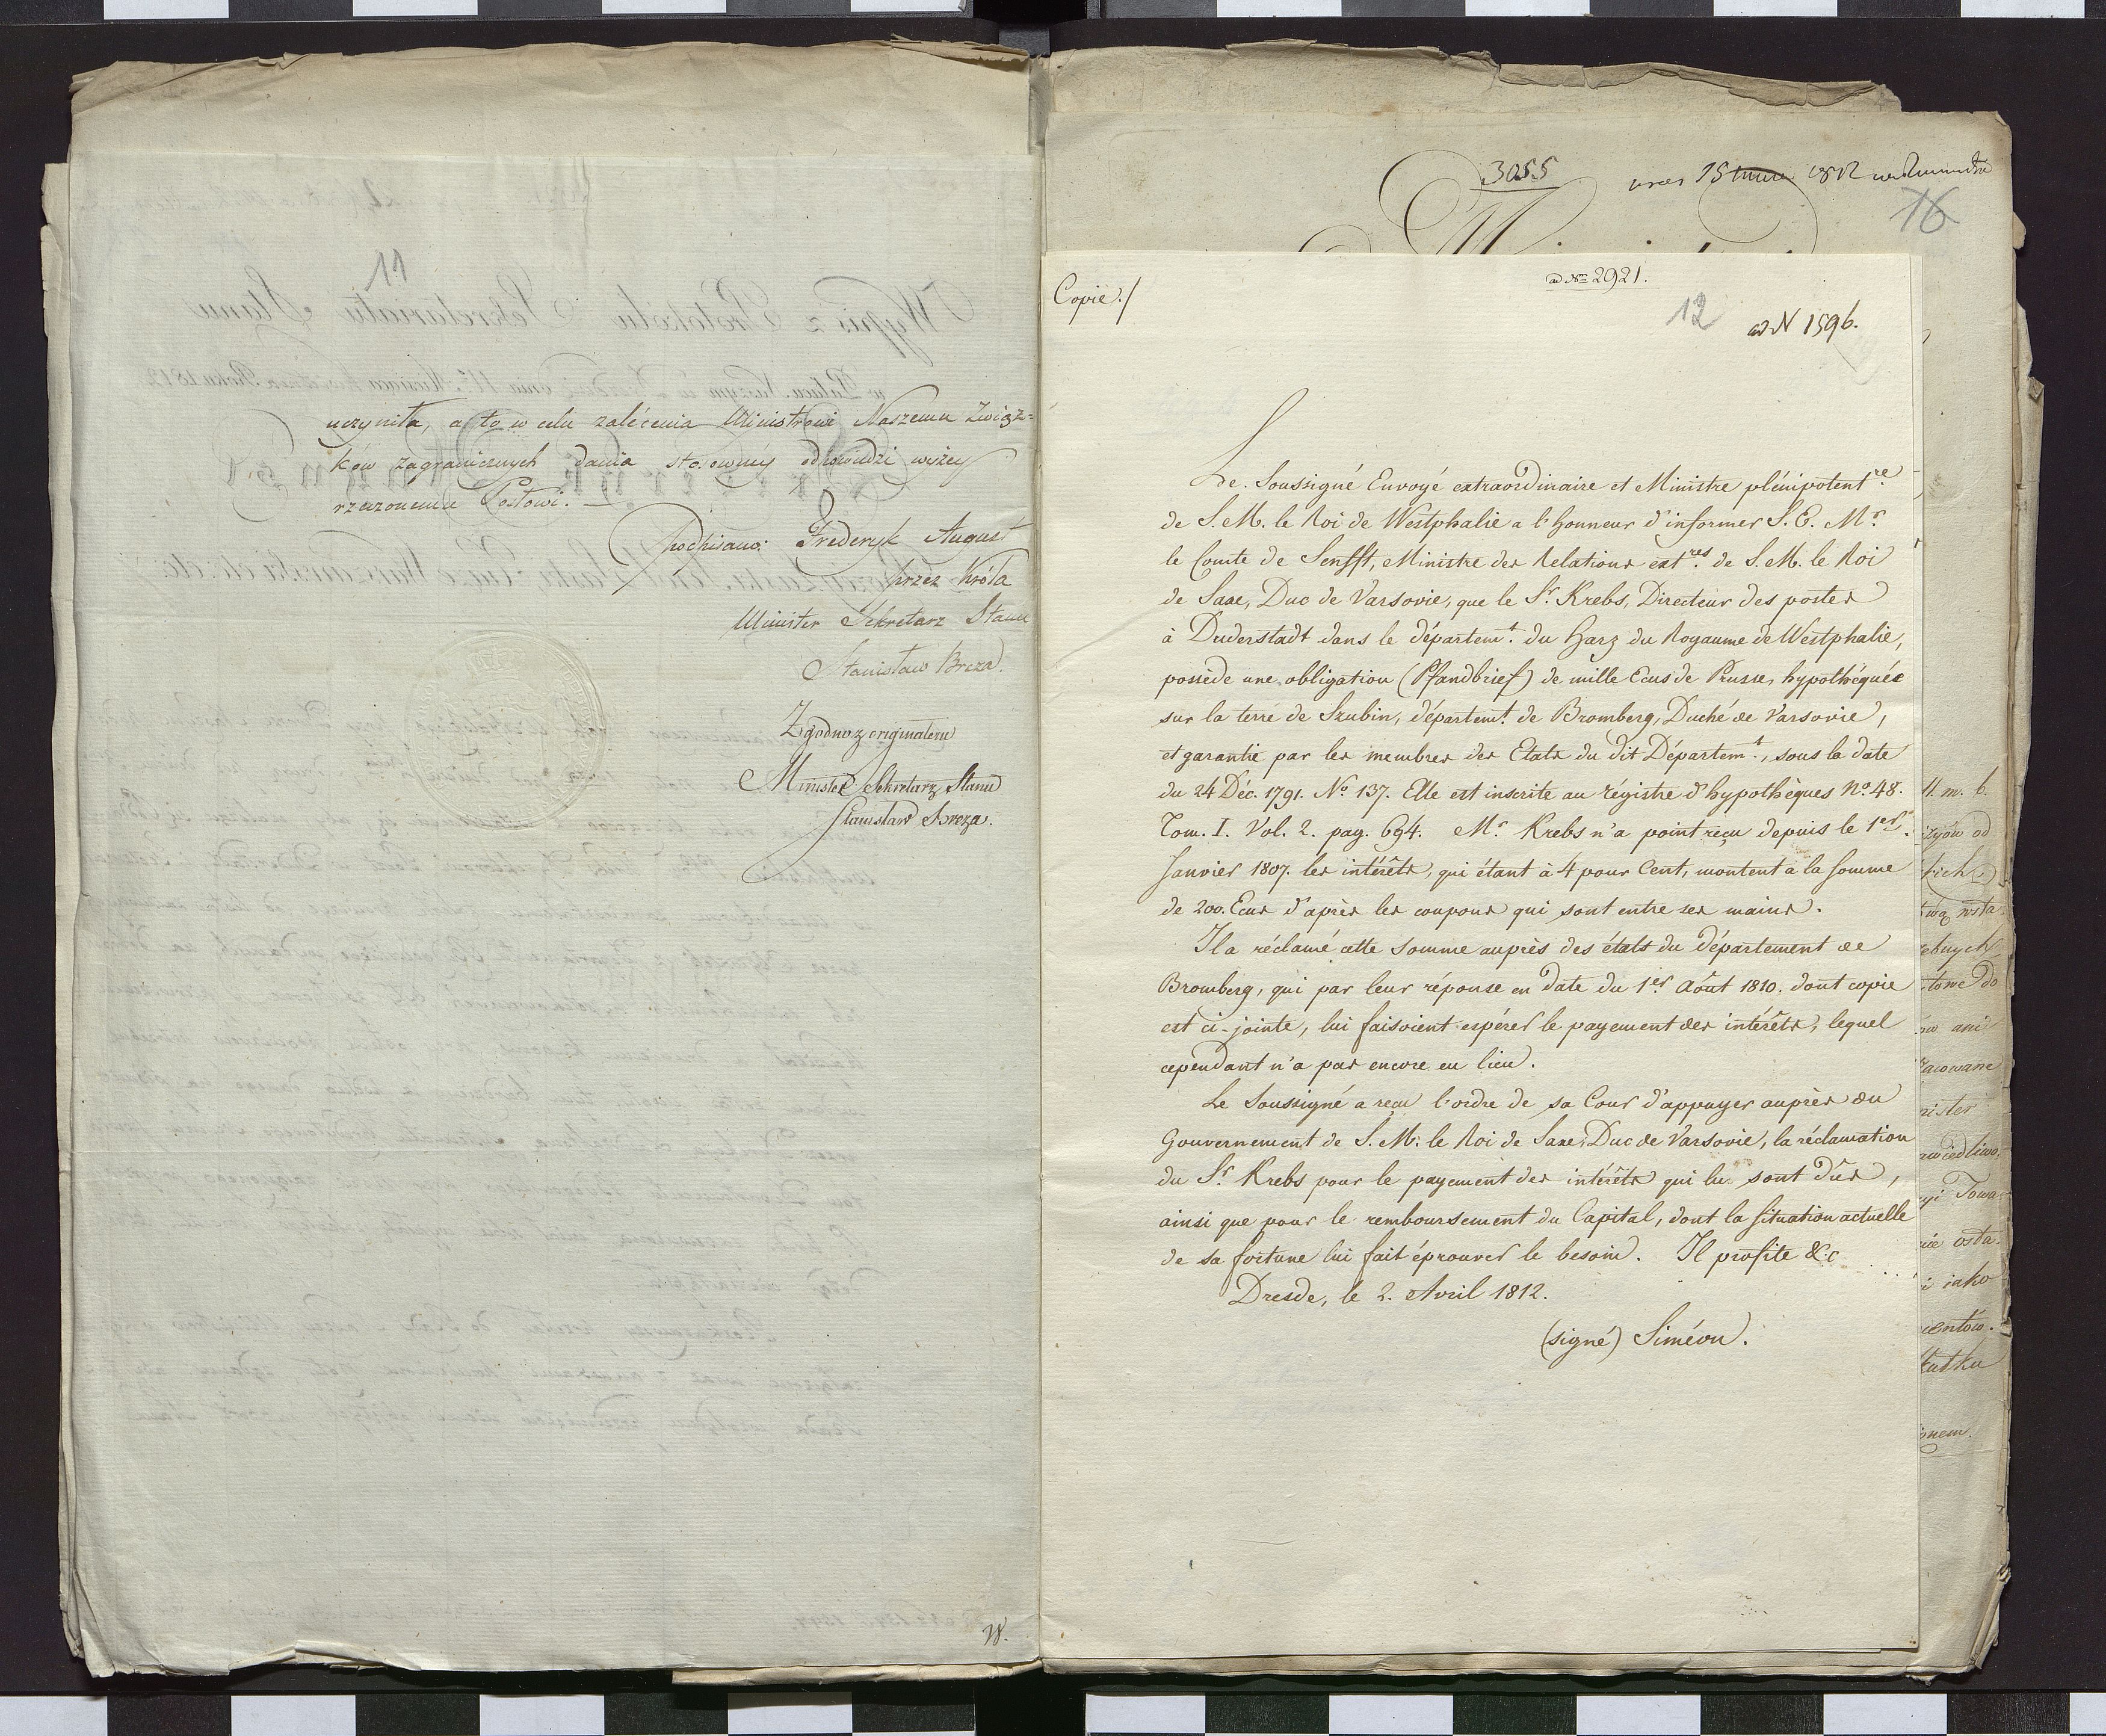 11
uczyniła, a to w celu zalécenia Ministrowi Naszemu Związ=
ków zagranicznych dania stosowney odpowiedzi wyżey
rzeczonemu Posłowi. —
podpisano: Frederyk August
przez Króla
Minister Sekretarz Stanu
Stanisław Breza.
Zgodno z originałem
Minister Sekretarz Stanu
Stanisław Breza.
W.
3055
16
Copie./
ad Nrm 2921.
12
ad N 1596.
Le Soussigné Envoyé extraordinaire et Ministre plénipotentre
de S. M. le Roi de Westphalie a l'honneur d'informer S. E. Mr
le Comte de Senfft, Ministre des Relations extres de S. M. le Roi
de Saxe, Duc de Varsovie, que le Sr Krebs, Directeur des postes
à Duderstadt dans le départemt du Harz du Royaume de Westphalie,
possède une obligation (Pfandbrief) de mille Ecus de Prusse, hypothéquée
sur la terre de Szubin, départemt de Bromberg, Duché de Varsovie,
et garantie par les membres des Etats du dit Départemt, sous la date
du 24 Déc. 1791. No 137. Elle est inscrite au régistre d'hypothèques No 48.
Tom. I. Vol. 2. pag. 694. Mr Krebs n'a point reçu depuis le 1er
Janvier 1807. les intérêts, qui étant à 4 pour Cent, montent à la somme
de 200. Ecus d'après les coupons qui sont entre ses mains.
Il a réclamé cette somme auprès des états du département de
Bromberg, qui par leur réponse en date du 1er Août 1810. dont copie
est ci-jointe, lui faisoient espérer le payement des intérêts, lequel
cependant n'a pas encore eu lieu.
Le Soussigné a reçu l'ordre de sa Cour d'appuyer auprès du
Gouvernement de S. M. le Roi de Saxe, Duc de Varsovie, la réclamation
du Sr Krebs pour le payement des intérêts qui lui sont dûs,
ainsi que pour le remboursement du Capital, dont la situation actuelle
de sa fortune lui fait éprouver le besoin. Il profite &c
Dresde, le 2. Avril 1812.
(signé) Siméon.